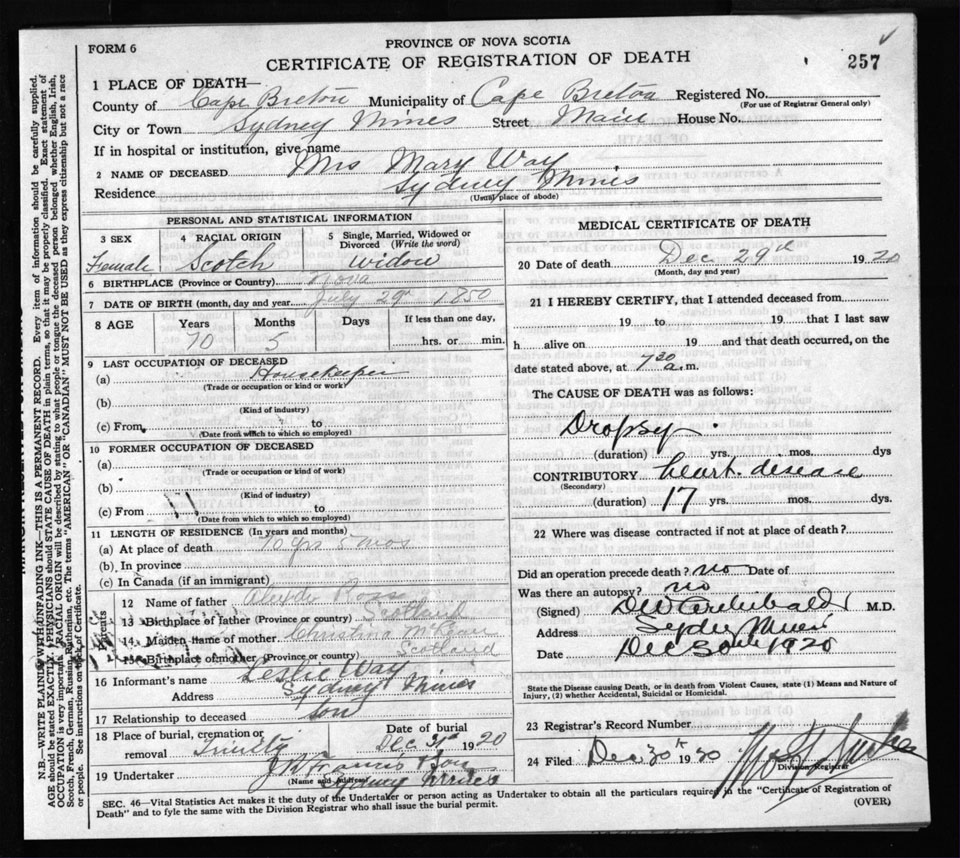 FORM 6
PROVINCE OF NOVA SCOTIA
CERTIFICATE OF REGISTRATION OF DEATH
257
1 PLACE OF DEATH—
County of Cape Breton Municipality of Cape Breton Registered No.
(For use of Registrar General only)
City or Town Sydney Mines Street Main House No.
If in hospital or institution, give name
2 NAME OF DECEASED Mrs Mary Way
Residence Sydney Mines
(Usual place of abode)
PERSONAL AND STATISTICAL INFORMATION
3 SEX 4 RACIAL ORIGIN 5 Single, Married, Widowed or Divorced (Write the word)
Female Scotch Widow
6 BIRTHPLACE (Province or Country) Nova
7 DATE OF BIRTH (month, day and year) July 29th 1850
8 AGE Years Months Days If less than one day,
70 5 hrs. or min.
9 LAST OCCUPATION OF DECEASED
(a) Housekeeper
(Trade or occupation or kind of work)
(b)
(Kind of industry)
(c) From to
(Date from which to which so employed)
10 FORMER OCCUPATION OF DECEASED
(a)
(Trade or occupation or kind of work)
(b)
(Kind of industry)
(c) From to
(Date from which to which so employed)
11 LENGTH OF RESIDENCE (In years and months)
(a) At place of death 70 yrs 5 mos
(b) In province
(c) In Canada (if an immigrant)
Parents
12 Name of father Ross
13 Birthplace of father (Province or country) Scotland
14 Maiden name of mother Christina
15 Birthplace of mother (Province or country) Scotland
16 Informant's name Leslie Way
Address Sydney Mines
17 Relationship to deceased Son
18 Place of burial, cremation or removal Trinity Date of burial Dec 31st 1920
19 Undertaker J Francis Son
(Name and address) Sydney Mines
MEDICAL CERTIFICATE OF DEATH
20 Date of death Dec 29th 1920
(Month, day and year)
21 I HEREBY CERTIFY, that I attended deceased from
19 to 19 that I last saw
h alive on 19 and that death occurred, on the
date stated above, at 7 30 a.m.
The CAUSE OF DEATH was as follows:
Dropsy
(duration) yrs. mos. dys
CONTRIBUTORY heart disease
(Secondary)
(duration) 17 yrs. mos. dys.
22 Where was disease contracted if not at place of death?
Did an operation precede death? no Date of
Was there an autopsy? no
(Signed) Archibald M.D.
Address Sydney Mines
Date Dec 30th 1920
State the Disease causing Death, or in death from Violent Causes, state (1) Means and Nature of
Injury, (2) whether Accidental, Suicidal or Homicidal.
23 Registrar's Record Number
24 Filed Dec 30th 1920
Division Registrar
SEC. 46—Vital Statistics Act makes it the duty of the Undertaker or person acting as Undertaker to obtain all the particulars required in the "Certificate of Registration of
Death" and to fyle the same with the Division Registrar who shall issue the burial permit.
(OVER)
N.B.—WRITE PLAINLY WITH UNFADING INK—THIS IS A PERMANENT RECORD. Every item of information should be carefully supplied.
AGE should be stated EXACTLY. PHYSICIANS should STATE CAUSE OF DEATH in plain terms, so that it may be properly classified. Exact statement of
OCCUPATION is very important. RACIAL ORIGIN will be described by stating to what people or tongue the deceased person belonged whether English, Irish,
Scotch, French, German, Russian, Ruthenian, etc. The terms "AMERICAN" OR "CANADIAN" MUST NOT BE USED as they express citizenship but not a race
or people. See instructions on back of Certificate.